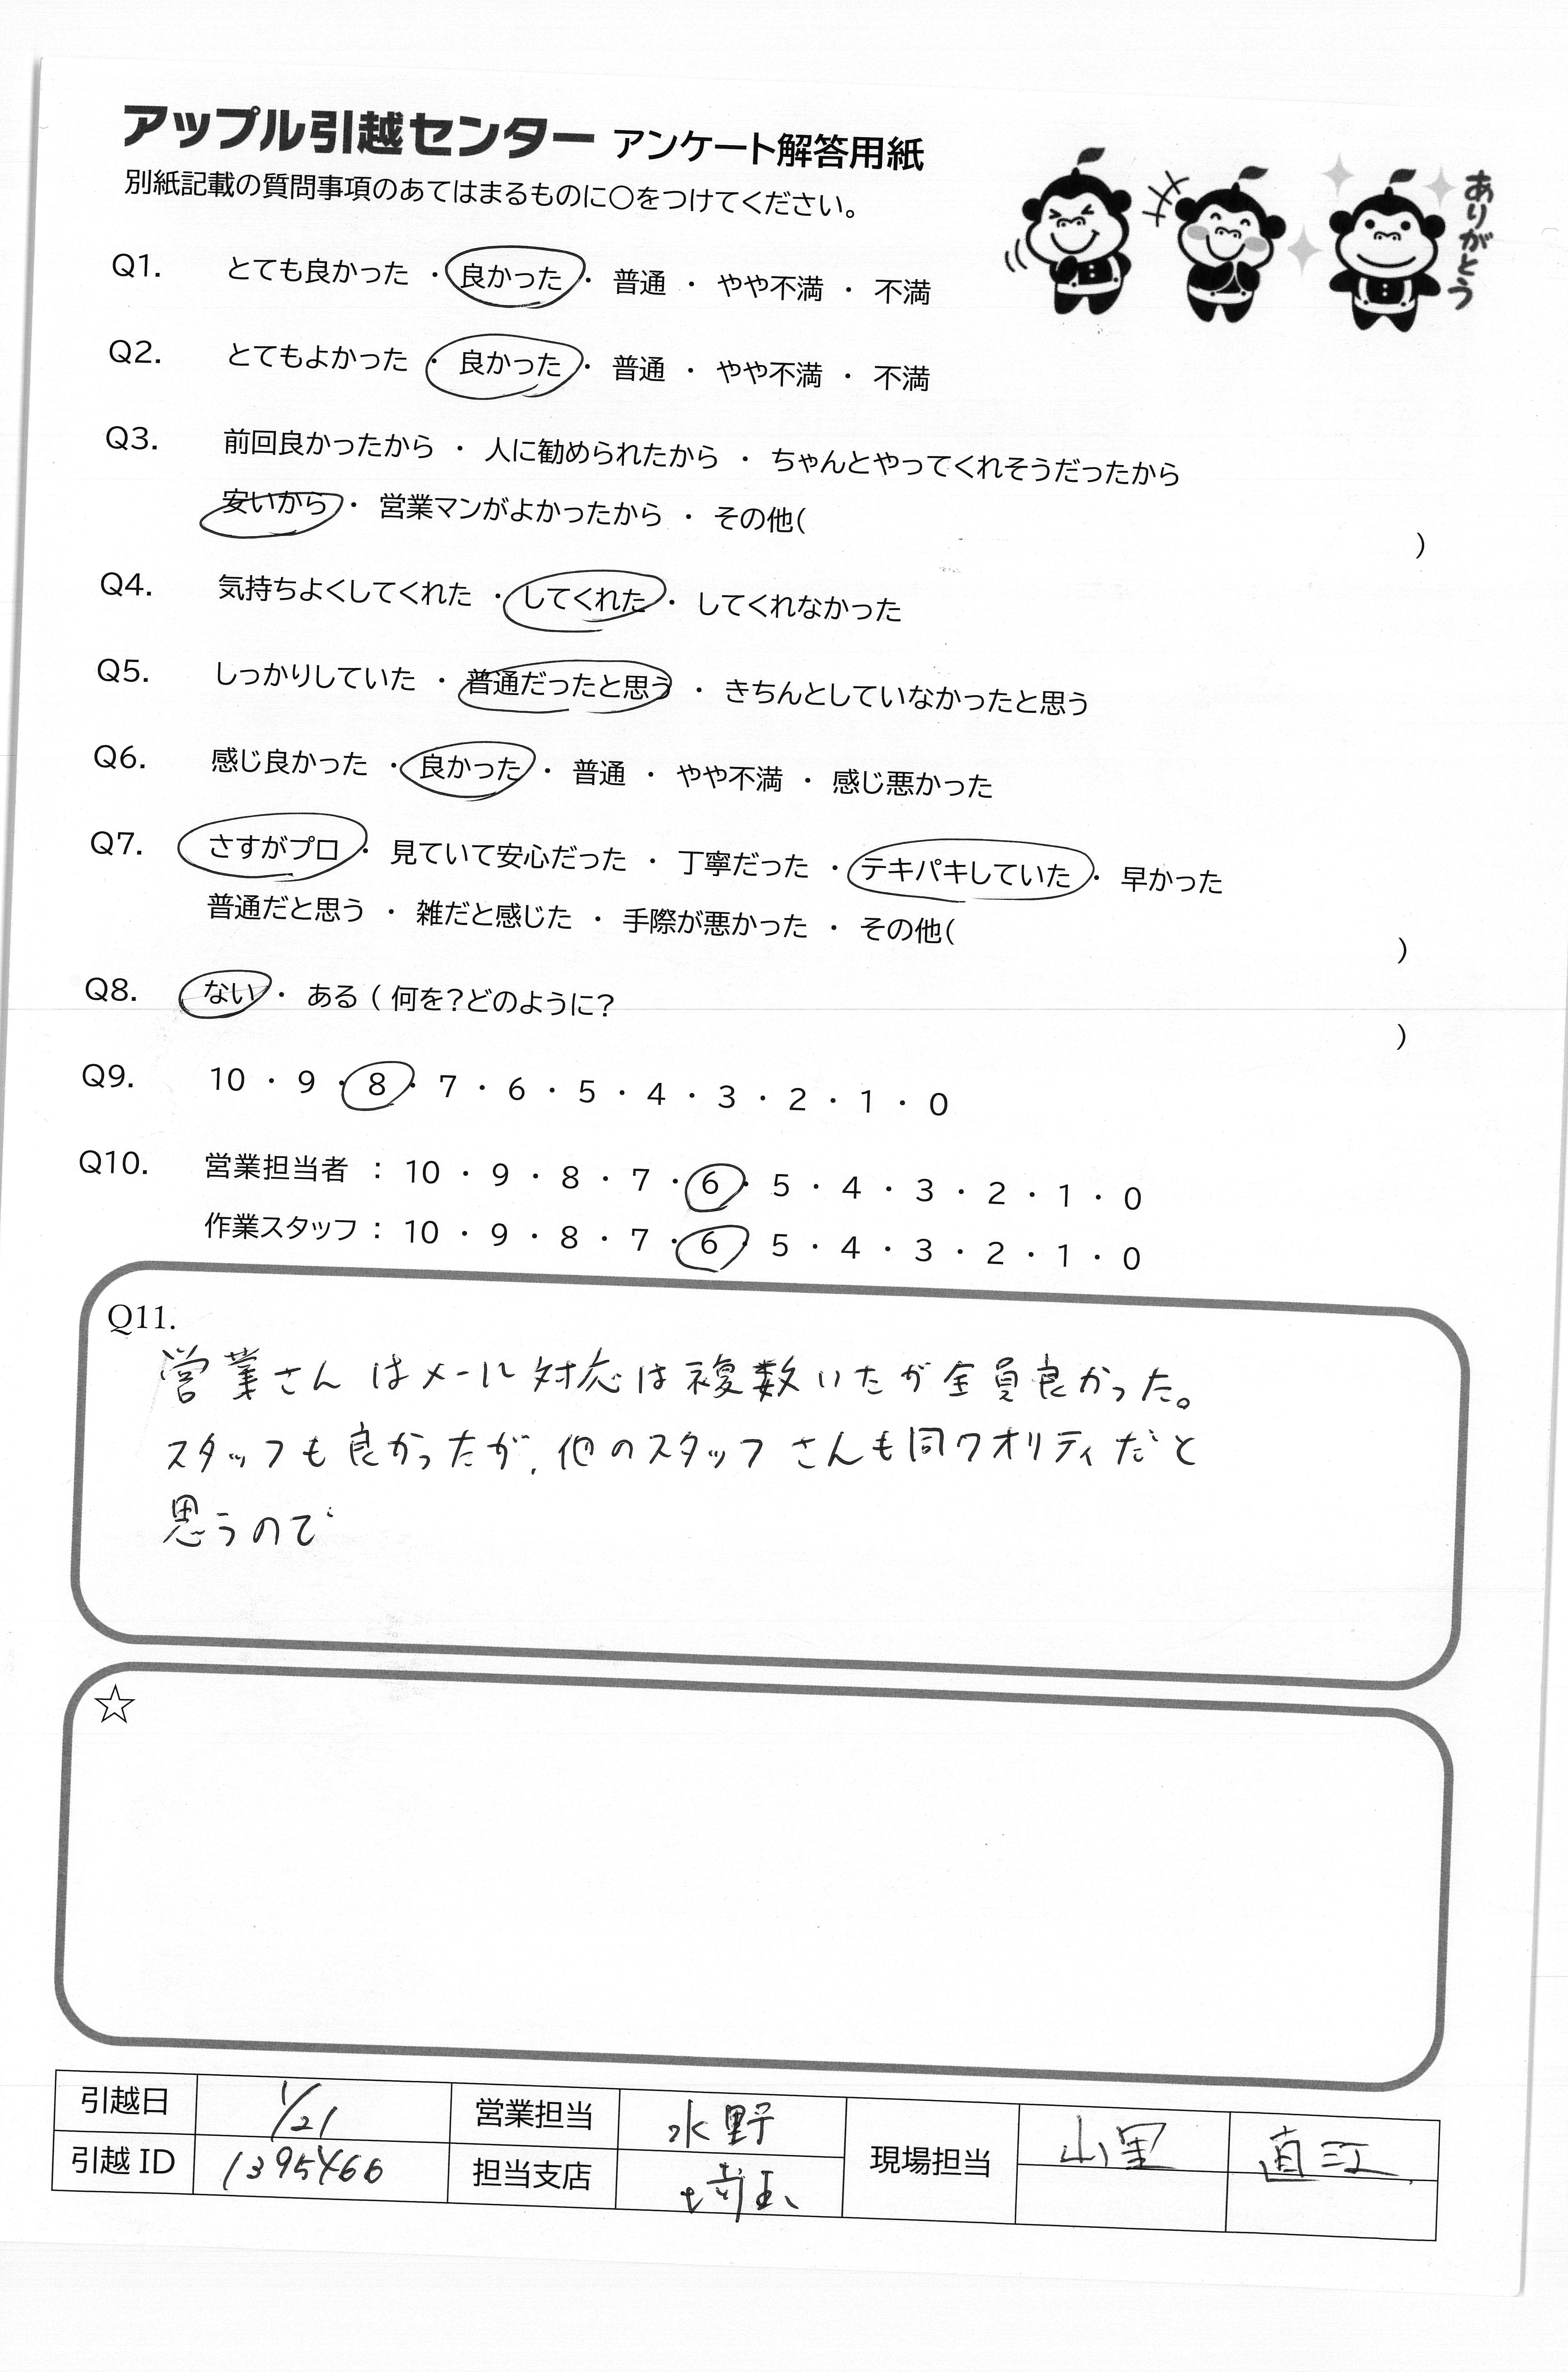 アップル引越センター アンケート解答用紙
別紙記載の質問事項のあてはまるものに〇をつけてください。
ありがとう
Q1. とても良かった ・ 良かった ・ 普通 ・ やや不満 ・ 不満
Q2. とてもよかった ・ 良かった ・ 普通 ・ やや不満 ・ 不満
Q3. 前回良かったから ・ 人に勧められたから ・ ちゃんとやってくれそうだったから
安いから ・ 営業マンがよかったから ・ その他( )
Q4. 気持ちよくしてくれた ・ してくれた ・ してくれなかった
Q5. しっかりしていた ・ 普通だったと思う ・ きちんとしていなかったと思う
Q6. 感じ良かった ・ 良かった ・ 普通 ・ やや不満 ・ 感じ悪かった
Q7. さすがプロ ・ 見ていて安心だった ・ 丁寧だった ・ テキパキしていた ・ 早かった
普通だと思う ・ 雑だと感じた ・ 手際が悪かった ・ その他( )
Q8. ない ・ ある ( 何を?どのように? )
Q9. 10 ・ 9 ・ 8 ・ 7 ・ 6 ・ 5 ・ 4 ・ 3 ・ 2 ・ 1 ・ 0
Q10. 営業担当者 : 10 ・ 9 ・ 8 ・ 7 ・ 6 ・ 5 ・ 4 ・ 3 ・ 2 ・ 1 ・ 0
作業スタッフ : 10 ・ 9 ・ 8 ・ 7 ・ 6 ・ 5 ・ 4 ・ 3 ・ 2 ・ 1 ・ 0
Q11.
営業さんはメール対応は複数いたが全員良かった。
スタッフも良かったが、他のスタッフさんも同クオリティだと
思うので
☆
引越日 1/21 営業担当 水野 現場担当 山里 直江
引越ID 1395466 担当支店 埼玉